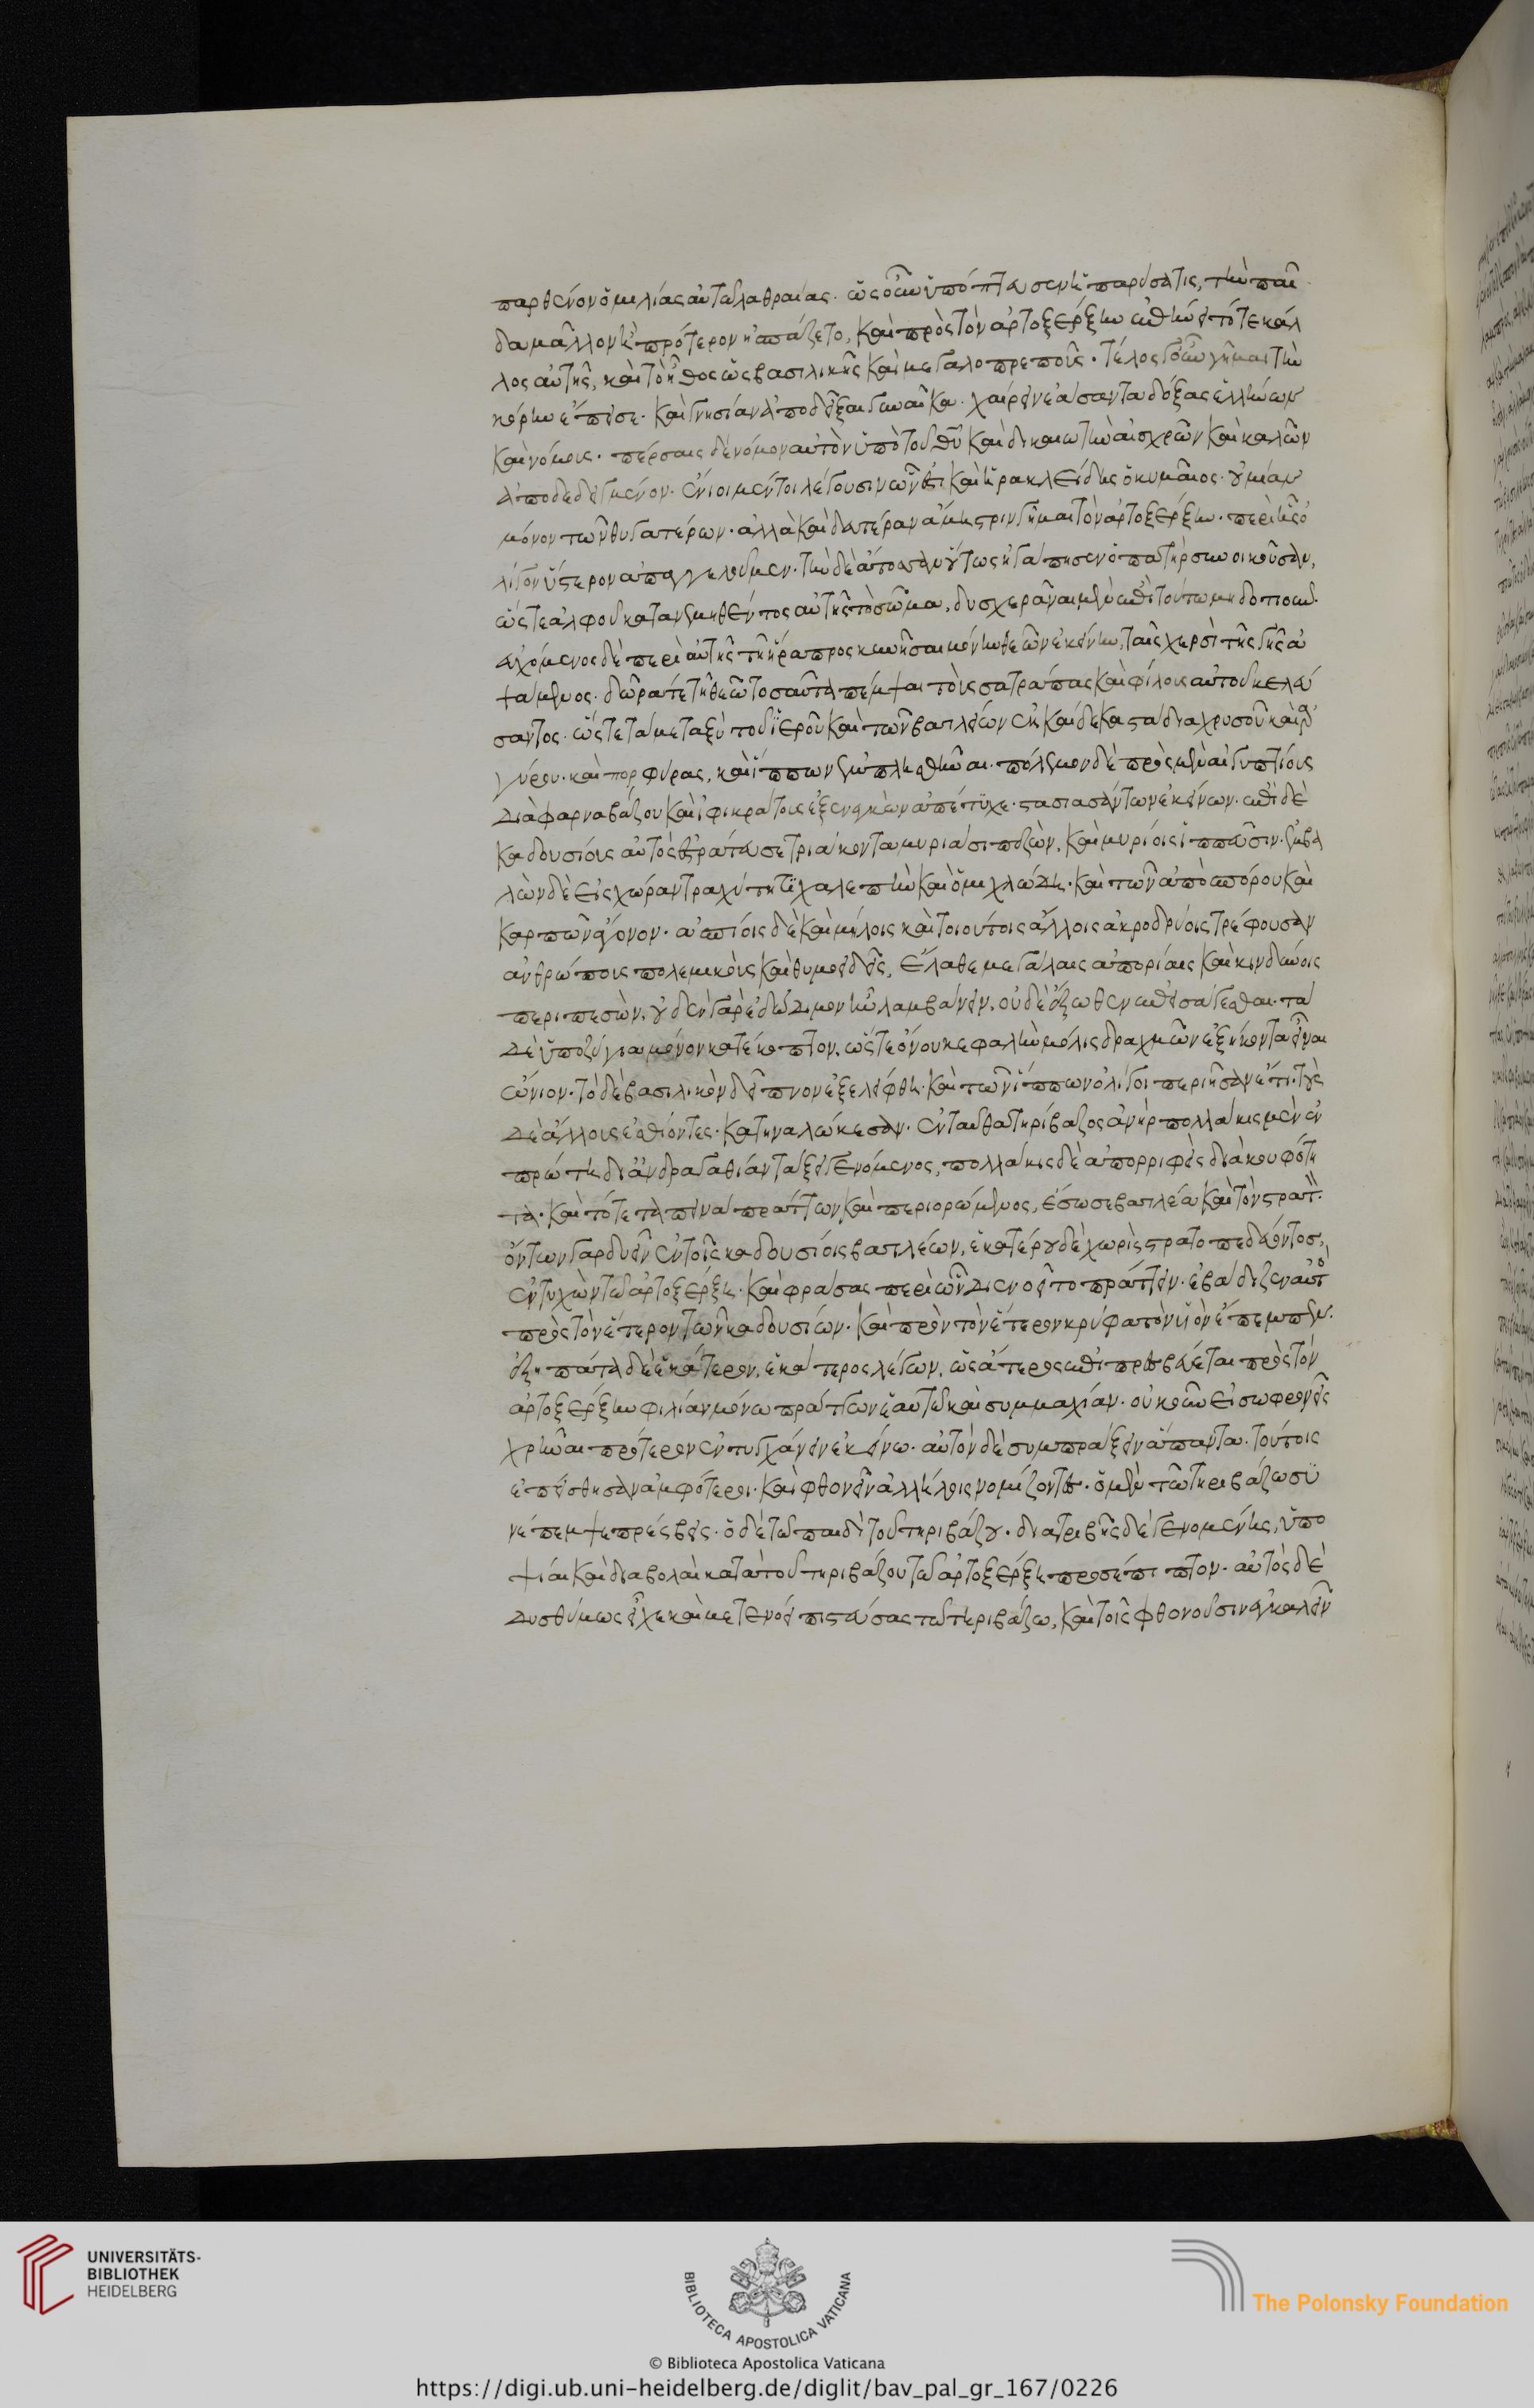 παρθένον ὁμιλίας αὐτῷ λαθραίας. ὡς οὖν ὑπόπτευσεν ἡ παρύσατις, τὴν παῖ
δα μᾶλλον ἢ πρότερον ἠσπάζετο, καὶ πρὸς τὸν ἀρτοξέρξην ἐπῄνει τό τε κάλ
λος αὐτῆς, καὶ τὸ ἦθος ὡς βασιλικῆς καὶ μεγαλοπρεποῦς. τέλος γοῦν γῆμαι τὴν
κόρην ἔπεισε. καὶ γνησίαν ἀποδεῖξαι γυναῖκα. χαίρειν ἐάσαντα δόξας ἑλλήνων
καὶ νόμοις. πέρσαις δὲ νόμον αὐτὸν ὑπὸ τοῦ θεοῦ καὶ δικαιωτὴν αἰσχρῶν καὶ καλῶν
ἀποδεδειγμένον. ἔνιοι μέντοι λέγουσιν ὧν ἐστι καὶ ἡρακλείδης ὁ κυμαῖος. οὐ μίαν
μόνον τῶν θυγατέρων. ἀλλὰ καὶ δευτέραν ἄμηστριν γῆμαι τὸν ἀρτοξέρξην. περὶ ἧς ὀ
λίγον ὕστερον ἀπαγγελοῦμεν. τὴν δὲ ἄτοσσαν οὕτως ἠγάπησεν ὁ πατὴρ συνοικοῦσαν,
ὥστε ἀλφοῦ κατανεμηθέντος αὐτῆς τὸ σῶμα, δυσχερᾶναι μὲν ἐπὶ τούτῳ μηδοτιοῦν.
εὐχόμενος δὲ περὶ αὐτῆς τῇ ἥρᾳ προσκυνῆσαι μόνην θεῶν ἐκείνην, ταῖς χερσὶ τῆς γῆς ἁ
ψάμενος. δῶρά τε τῇ θεῷ τοσαῦτα πέμψαι τοὺς σατράπας καὶ φίλους αὐτοῦ κελεύ
σαντος. ὥστε τὰ μεταξὺ τοῦ ἱεροῦ καὶ τῶν βασιλείων ἑκκαίδεκα στάδια χρυσοῦ καὶ ἀρ
γύρου. καὶ πορφύρας, καὶ ἵππων ἐμπλησθῆναι. πόλεμον δὲ πρὸς μὲν αἰγυπτίους
διὰ φαρναβάζου καὶ ἰφικράτους ἐξενεγκὼν ἀπέτυχε. στασιασάντων ἐκείνων. ἐπὶ δὲ
καδουσίους αὐτὸς ἐστράτευσε τριάκοντα μυριάσι πεζῶν, καὶ μυρίοις ἱππεῦσιν. ἐμβα
λὼν δὲ εἰς χώραν τραχύτητι χαλεπὴν καὶ ὁμιχλώδη. καὶ τῶν ἀπὸ σπόρου καὶ
καρπῶν ἄγονον. ἀπίοις δὲ καὶ μήλοις καὶ τοιούτοις ἄλλοις ἀκροδρύοις τρέφουσαν
ἀνθρώπους πολεμικοὺς καὶ θυμοειδεῖς, ἔλαθε μεγάλαις ἀπορίαις καὶ κινδύνοις
περιπεσών. οὐδὲν γὰρ ἐδώδιμον ἦν λαμβάνειν. οὐδὲ ἔξωθεν ἐπεισάγεσθαι. τὰ
δὲ ὑποζύγια μόνον κατέκοπτον. ὥστε ὄνου κεφαλὴν μόλις δραχμῶν ἑξήκοντα εἶναι
ὤνιον. τὸ δὲ βασιλικὸν δεῖπνον ἐξελείφθη. καὶ τῶν ἵππων ὀλίγοι περιῆσαν ἔτι. τοὺς
δὲ ἄλλους ἐσθίοντες. κατηναλώκεσαν. ἐνταῦθα τηρίβαζος ἀνὴρ πολλάκις μὲν ἐν
πρώτῃ δι᾽ ἀνδραγαθίαν τάξει γενόμενος, πολλάκις δὲ ἀπορριφεὶς διὰ κουφότη
τα. καὶ τότε ταπεινὰ πράττων καὶ περιορώμενος, ἔσωσε βασιλέα καὶ τὸν στρατόν.
ὄντων γὰρ δυεῖν ἐν τοῖς καδουσίοις βασιλέων, ἑκατέρου δὲ χωρὶς στρατοπεδεύοντος,
ἐντυχὼν τῷ ἀρτοξέρξῃ. καὶ φράσας περὶ ὧν διενοεῖτο πράττειν. ἐβάδιζεν αὐτὸς
πρὸς τὸν ἕτερον τῶν καδουσίων. καὶ πρὸς τὸν ἕτερον κρύφα τὸν υἱὸν ἔπεμπεν.
ἐξηπάτα δὲ ἑκάτερον, ἑκάτερος λέγων, ὡς ἅτερος ἐπιπρεσβεύεται πρὸς τὸν
ἀρτοξέρξην φιλίαν μόνῳ πράττων ἑαυτῷ καὶ συμμαχίαν. οὐκοῦν εἰ σωφρονεῖ
χρῆναι πρότερον ἐντυγχάνειν ἐκείνῳ. αὐτὸν δὲ συμπράξειν ἅπαντα. τούτοις
ἐπείσθησαν ἀμφότεροι. καὶ φθονεῖν ἀλλήλοις νομίζοντες. ὁ μὲν τῷ τηριβάζῳ συ
νέπεμψε πρέσβεις. ὁ δὲ τῷ παιδὶ τοῦ τηριβάζου. διατριβῆς δὲ γενομένης, ὑπο
ψίαι καὶ διαβολαὶ κατὰ τοῦ τηριβάζου τῷ ἀρτοξέρξῃ προσέπιπτον. αὐτὸς δὲ
δυσθύμως εἶχε καὶ μετενόει πιστεύσας τῷ τηριβάζῳ, καὶ τοῖς φθονοῦσιν ἐγκαλεῖν
UNIVERSITÄTS-
BIBLIOTHEK
HEIDELBERG
BIBLIOTECA APOSTOLICA VATICANA
The Polonsky Foundation
© Biblioteca Apostolica Vaticana
https://digi.ub.uni-heidelberg.de/diglit/bav_pal_gr_167/0226